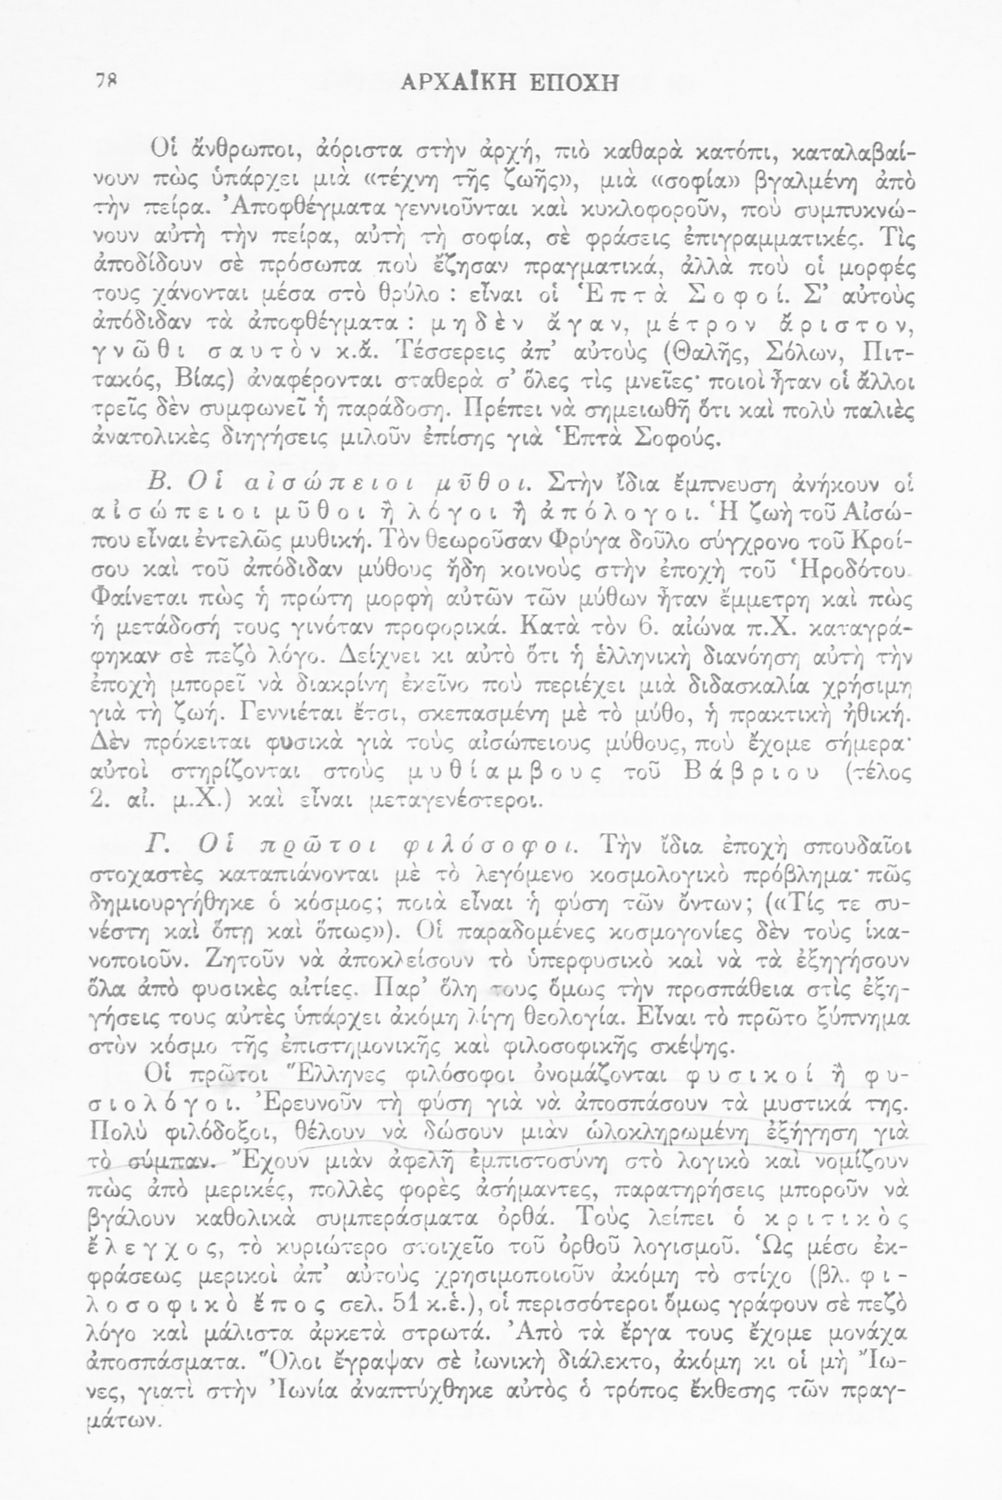 78 ΑΡΧΑΪΚΗ ΕΠΟΧΗ
Οἱ ἄνθρωποι, ἀόριστα στὴν ἀρχή, πιὸ καθαρὰ κατόπι, καταλαβαί-
νουν πὼς ὑπάρχει μιὰ «τέχνη τῆς ζωῆς», μιὰ «σοφία» βγαλμένη ἀπὸ
τὴν πείρα. Ἀποφθέγματα γεννιοῦνται καὶ κυκλοφοροῦν, ποὺ συμπυκνώ-
νουν αὐτὴ τὴν πείρα, αὐτὴ τὴ σοφία, σὲ φράσεις ἐπιγραμματικές. Τὶς
ἀποδίδουν σὲ πρόσωπα ποὺ ἔζησαν πραγματικά, ἀλλὰ ποὺ οἱ μορφές
τους χάνονται μέσα στὸ θρύλο : εἶναι οἱ Ἑπτὰ Σοφοί. Σ’ αὐτοὺς
ἀπόδιδαν τὰ ἀποφθέγματα : μηδὲν ἄγαν, μέτρον ἄριστον,
γνῶθι σαυτὸν κ.ἄ. Τέσσερεις ἀπ’ αὐτοὺς (Θαλῆς, Σόλων, Πιτ-
τακός, Βίας) ἀναφέρονται σταθερὰ σ’ ὅλες τὶς μνεῖες· ποιοὶ ἦταν οἱ ἄλλοι
τρεῖς δὲν συμφωνεῖ ἡ παράδοση. Πρέπει νὰ σημειωθῆ ὅτι καὶ πολὺ παλιὲς
ἀνατολικὲς διηγήσεις μιλοῦν ἐπίσης γιὰ Ἑπτὰ Σοφούς.
Β. Οἱ αἰσώπειοι μῦθοι. Στὴν ἴδια ἔμπνευση ἀνήκουν οἱ
αἰσώπειοι μῦθοι ἢ λόγοι ἢ ἀπόλογοι. Ἡ ζωὴ τοῦ Αἰσώ-
που εἶναι ἐντελῶς μυθική. Τὸν θεωροῦσαν Φρύγα δοῦλο σύγχρονο τοῦ Κροί-
σου καὶ τοῦ ἀπόδιδαν μύθους ἤδη κοινοὺς στὴν ἐποχὴ τοῦ Ἡροδότου.
Φαίνεται πὼς ἡ πρώτη μορφὴ αὐτῶν τῶν μύθων ἦταν ἔμμετρη καὶ πὼς
ἡ μετάδοσή τους γινόταν προφορικά. Κατὰ τὸν 6. αἰώνα π.Χ. καταγρά-
φηκαν σὲ πεζὸ λόγο. Δείχνει κι αὐτὸ ὅτι ἡ ἑλληνικὴ διανόηση αὐτὴ τὴν
ἐποχὴ μπορεῖ νὰ διακρίνη ἐκεῖνο ποὺ περιέχει μιὰ διδασκαλία χρήσιμη
γιὰ τὴ ζωή. Γεννιέται ἔτσι, σκεπασμένη μὲ τὸ μύθο, ἡ πρακτικὴ ἠθική.
Δὲν πρόκειται φυσικὰ γιὰ τοὺς αἰσώπειους μύθους, ποὺ ἔχομε σήμερα·
αὐτοὶ στηρίζονται στοὺς μυθίαμβους τοῦ Βάβριου (τέλος
2. αἰ. μ.Χ.) καὶ εἶναι μεταγενέστεροι.
Γ. Οἱ πρῶτοι φιλόσοφοι. Τὴν ἴδια ἐποχὴ σπουδαῖοι
στοχαστὲς καταπιάνονται μὲ τὸ λεγόμενο κοσμολογικὸ πρόβλημα· πῶς
δημιουργήθηκε ὁ κόσμος; ποιὰ εἶναι ἡ φύση τῶν ὄντων; («Τίς τε συ-
νέστη καὶ ὅπῃ καὶ ὅπως»). Οἱ παραδομένες κοσμογονίες δὲν τοὺς ἱκα-
νοποιοῦν. Ζητοῦν νὰ ἀποκλείσουν τὸ ὑπερφυσικὸ καὶ νὰ τὰ ἐξηγήσουν
ὅλα ἀπὸ φυσικὲς αἰτίες. Παρ’ ὅλη τους ὅμως τὴν προσπάθεια στὶς ἐξη-
γήσεις τους αὐτὲς ὑπάρχει ἀκόμη λίγη θεολογία. Εἶναι τὸ πρῶτο ξύπνημα
στὸν κόσμο τῆς ἐπιστημονικῆς καὶ φιλοσοφικῆς σκέψης.
Οἱ πρῶτοι Ἕλληνες φιλόσοφοι ὀνομάζονται φυσικοί ἢ φυ-
σιολόγοι. Ἐρευνοῦν τὴ φύση γιὰ νὰ ἀποσπάσουν τὰ μυστικά της.
Πολὺ φιλόδοξοι, θέλουν νὰ δώσουν μιὰν ὡλοκληρωμένη ἐξήγηση γιὰ
τὸ σύμπαν. Ἔχουν μιὰν ἀφελῆ ἐμπιστοσύνη στὸ λογικὸ καὶ νομίζουν
πὼς ἀπὸ μερικές, πολλὲς φορὲς ἀσήμαντες, παρατηρήσεις μποροῦν νὰ
βγάλουν καθολικὰ συμπεράσματα ὀρθά. Τοὺς λείπει ὁ κριτικὸς
ἔλεγχος, τὸ κυριώτερο στοιχεῖο τοῦ ὀρθοῦ λογισμοῦ. Ὡς μέσο ἐκ-
φράσεως μερικοὶ ἀπ’ αὐτοὺς χρησιμοποιοῦν ἀκόμη τὸ στίχο (βλ. φι-
λοσοφικὸ ἔπος σελ. 51 κ.ἑ.), οἱ περισσότεροι ὅμως γράφουν σὲ πεζὸ
λόγο καὶ μάλιστα ἀρκετὰ στρωτά. Ἀπὸ τὰ ἔργα τους ἔχομε μονάχα
ἀποσπάσματα. Ὅλοι ἔγραψαν σὲ ἰωνικὴ διάλεκτο, ἀκόμη κι οἱ μὴ Ἴω-
νες, γιατὶ στὴν Ἰωνία ἀναπτύχθηκε αὐτὸς ὁ τρόπος ἔκθεσης τῶν πραγ-
μάτων.